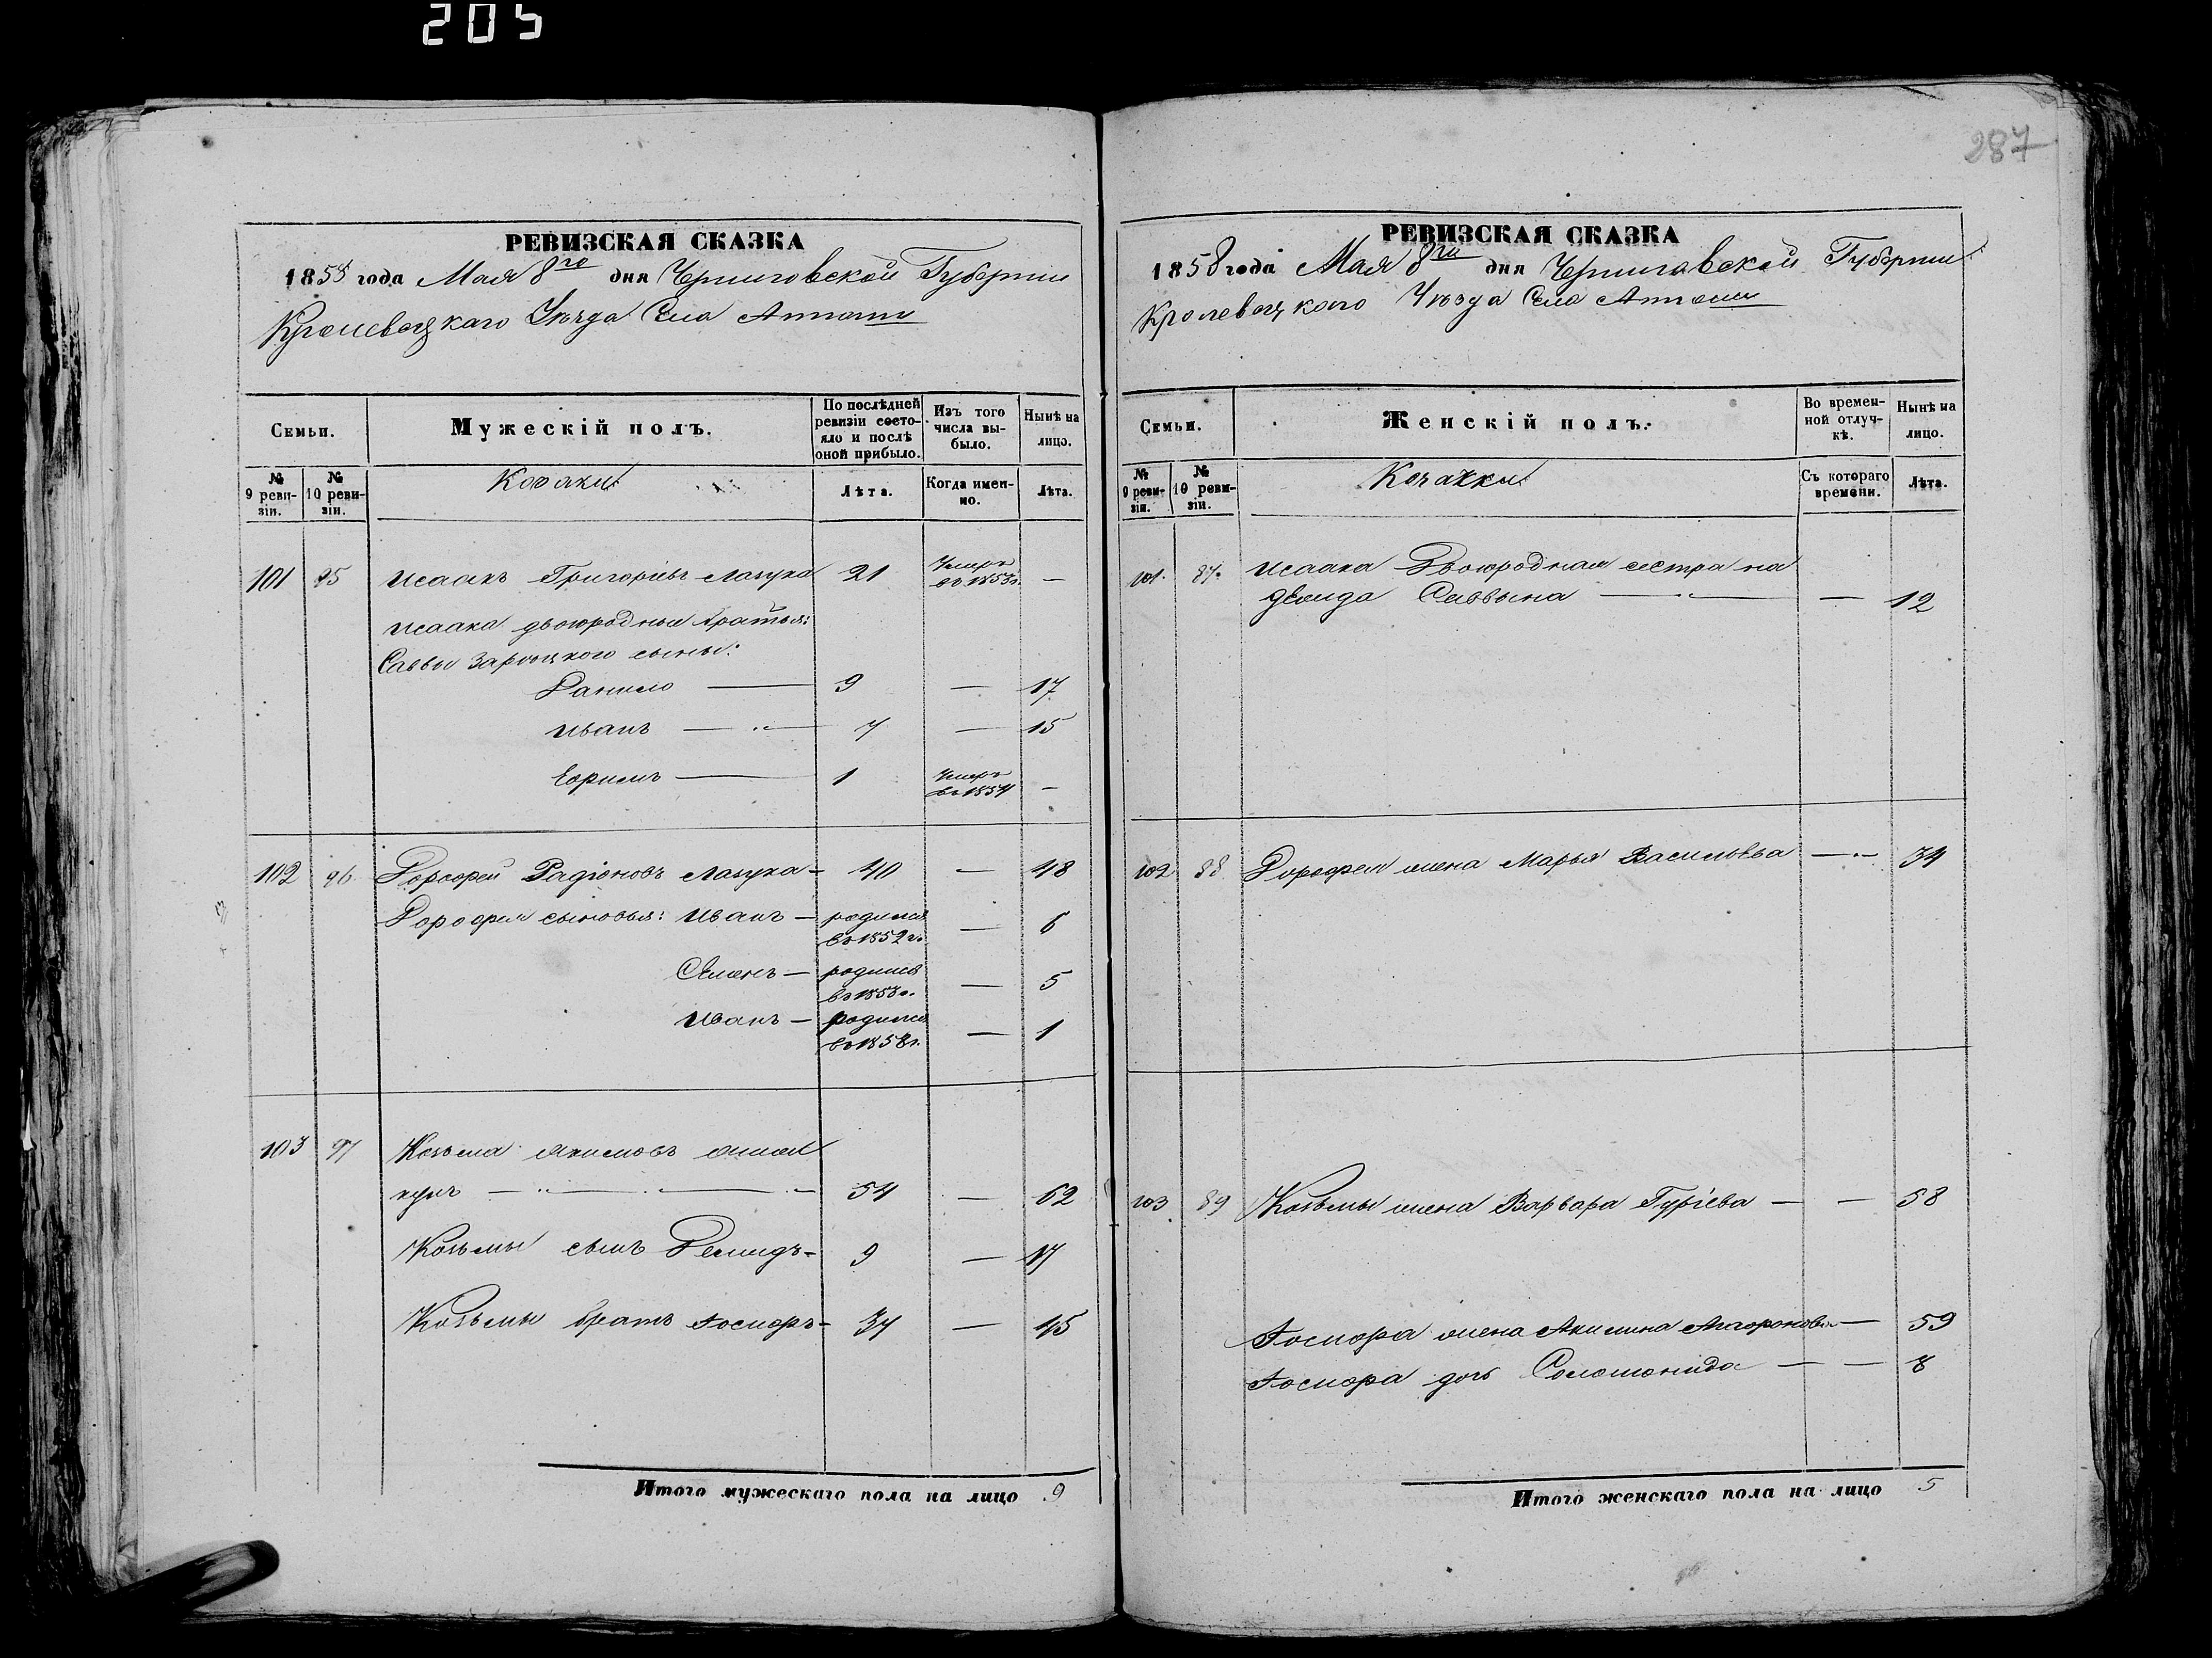 205
287
РЕВИЗСКАЯ СКАЗКА
1858 года Мая 8го дня Черниговской Губернии
Кролевецкаго Уѣзда Села
Семьи.
Мужескій полъ.
По послѣдней ревизіи состояло и послѣ оной прибыло.
Изъ того числа выбыло.
Нынѣ на лицо.
№ 9 ревизіи.
№ 10 ревизіи.
Козаки
Лѣта.
Когда именно.
Лѣта.
101 95 Исаакъ Григорьевъ Лазука 21 Умеръ въ 1853г. —
Исаака двоюродные братья:
Саввы Зарѣцкого сыны:
Данило — 9 — 17
Иванъ — 7 — 15
Ефимъ — 1 Умеръ въ 1854 —
102 96 Дорофей Радіоновъ Лазука — 40 — 48
Дорофея сыновья: Иванъ — родился въ 1852 г. — 6
Семенъ — родился въ 1853 г. — 5
Иванъ — родился въ 1858 г. — 1
103 97 Козьма Якимовъ
54 — 62
Козьмы сынъ Демидъ — 9 — 17
Козьмы братъ — 37 — 45
Итого мужескаго пола на лицо 9
РЕВИЗСКАЯ СКАЗКА
1858 года Мая 8го дня Черниговской Губернии
Кролевецкого Уѣзда Села
Семьи.
Женскій полъ.
Во временной отлучкѣ.
Нынѣ на лицо.
№ 9 ревизіи.
№ 10 ревизіи.
Козачки
Съ котораго времени.
Лѣта.
101. 87. Исаака Двоюродная сестра
Саввина — — 12
102 88 Дорофея жена Марья Васильева — 34
103 89 Козьмы жена Варвара Гурiева — — 58
жена Акилина — 59
дочь Соломонида — — 8
Итого женскаго пола на лицо 5